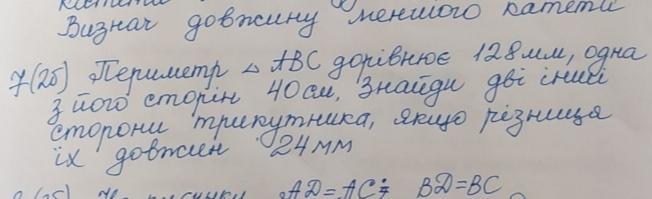 Визнач довжину меншого катета
7(2б) Периметр △ ABC дорівнює 128мм, одна
з його сторін 40см. Знайди дві інші
сторони трикутника, якщо різниця
їх довжин 24мм
AD=AC; BD=BC